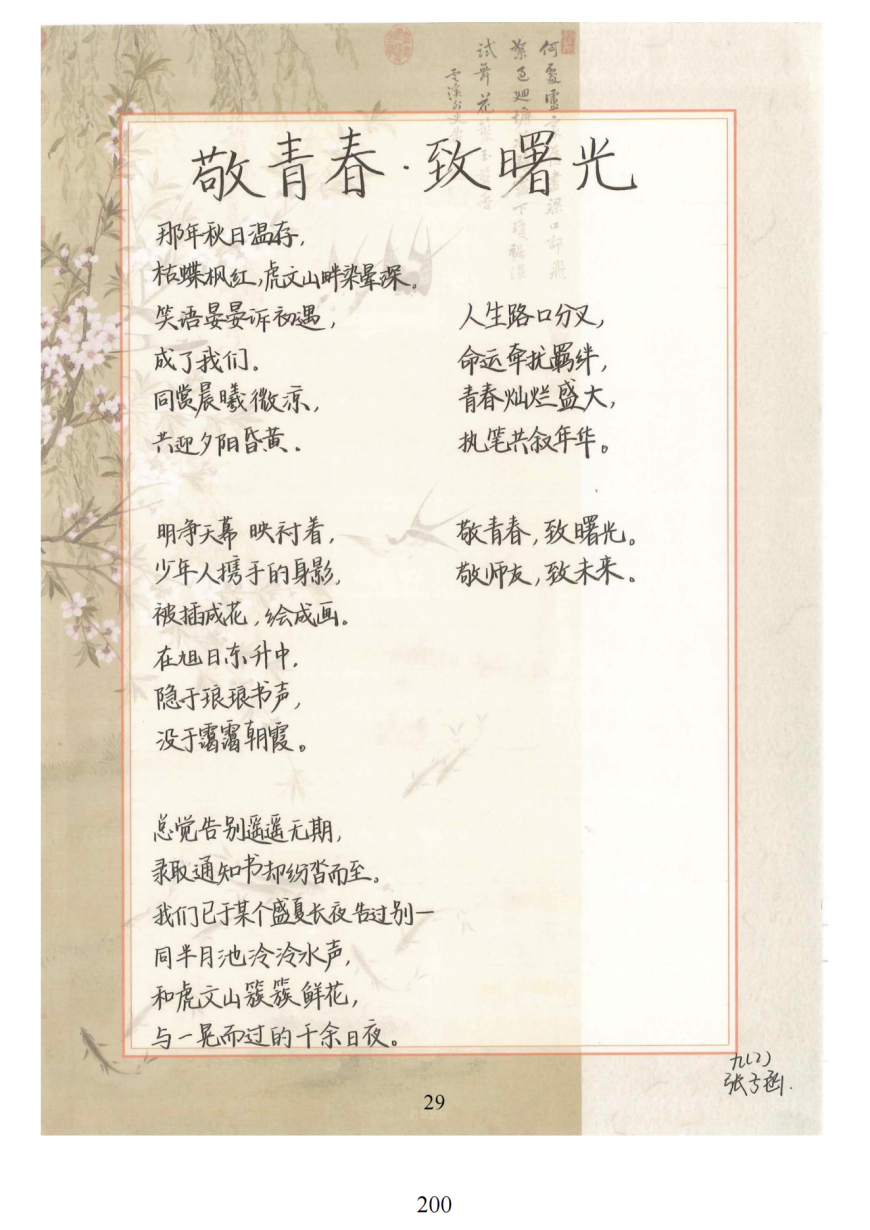 敬青春·致曙光
那年秋日温存，
枯蝶枫红，虎文山畔染晕深。
笑语晏晏诉初遇，
成了我们。
同赏晨曦微凉，
共迎夕阳昏黄．
明净天幕 映衬着，
少年人携手的身影，
被插成花，绘成画。
在旭日东升中，
隐于琅琅书声，
没于霭霭朝霞。
总觉告别遥遥无期，
录取通知书却纷沓而至。
我们已于某个盛夏长夜告过别—
同半月池泠泠水声，
和虎文山簇簇鲜花，
与一晃而过的千余日夜。
人生路口分叉，
命运牵扰羁绊，
青春灿烂盛大，
执笔共叙年华。
敬青春，致曙光。
敬师友，致未来。
九(2)
29
200
何处
试舞花